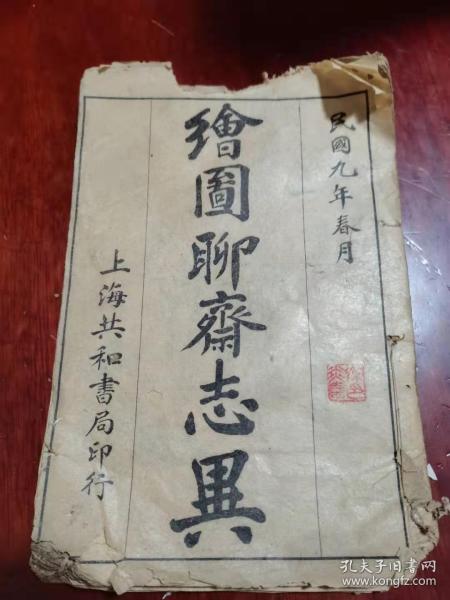 民國九年春月
繪圖聊齋志異
上海共和書局印行
孔夫子旧书网
www.kongfz.com